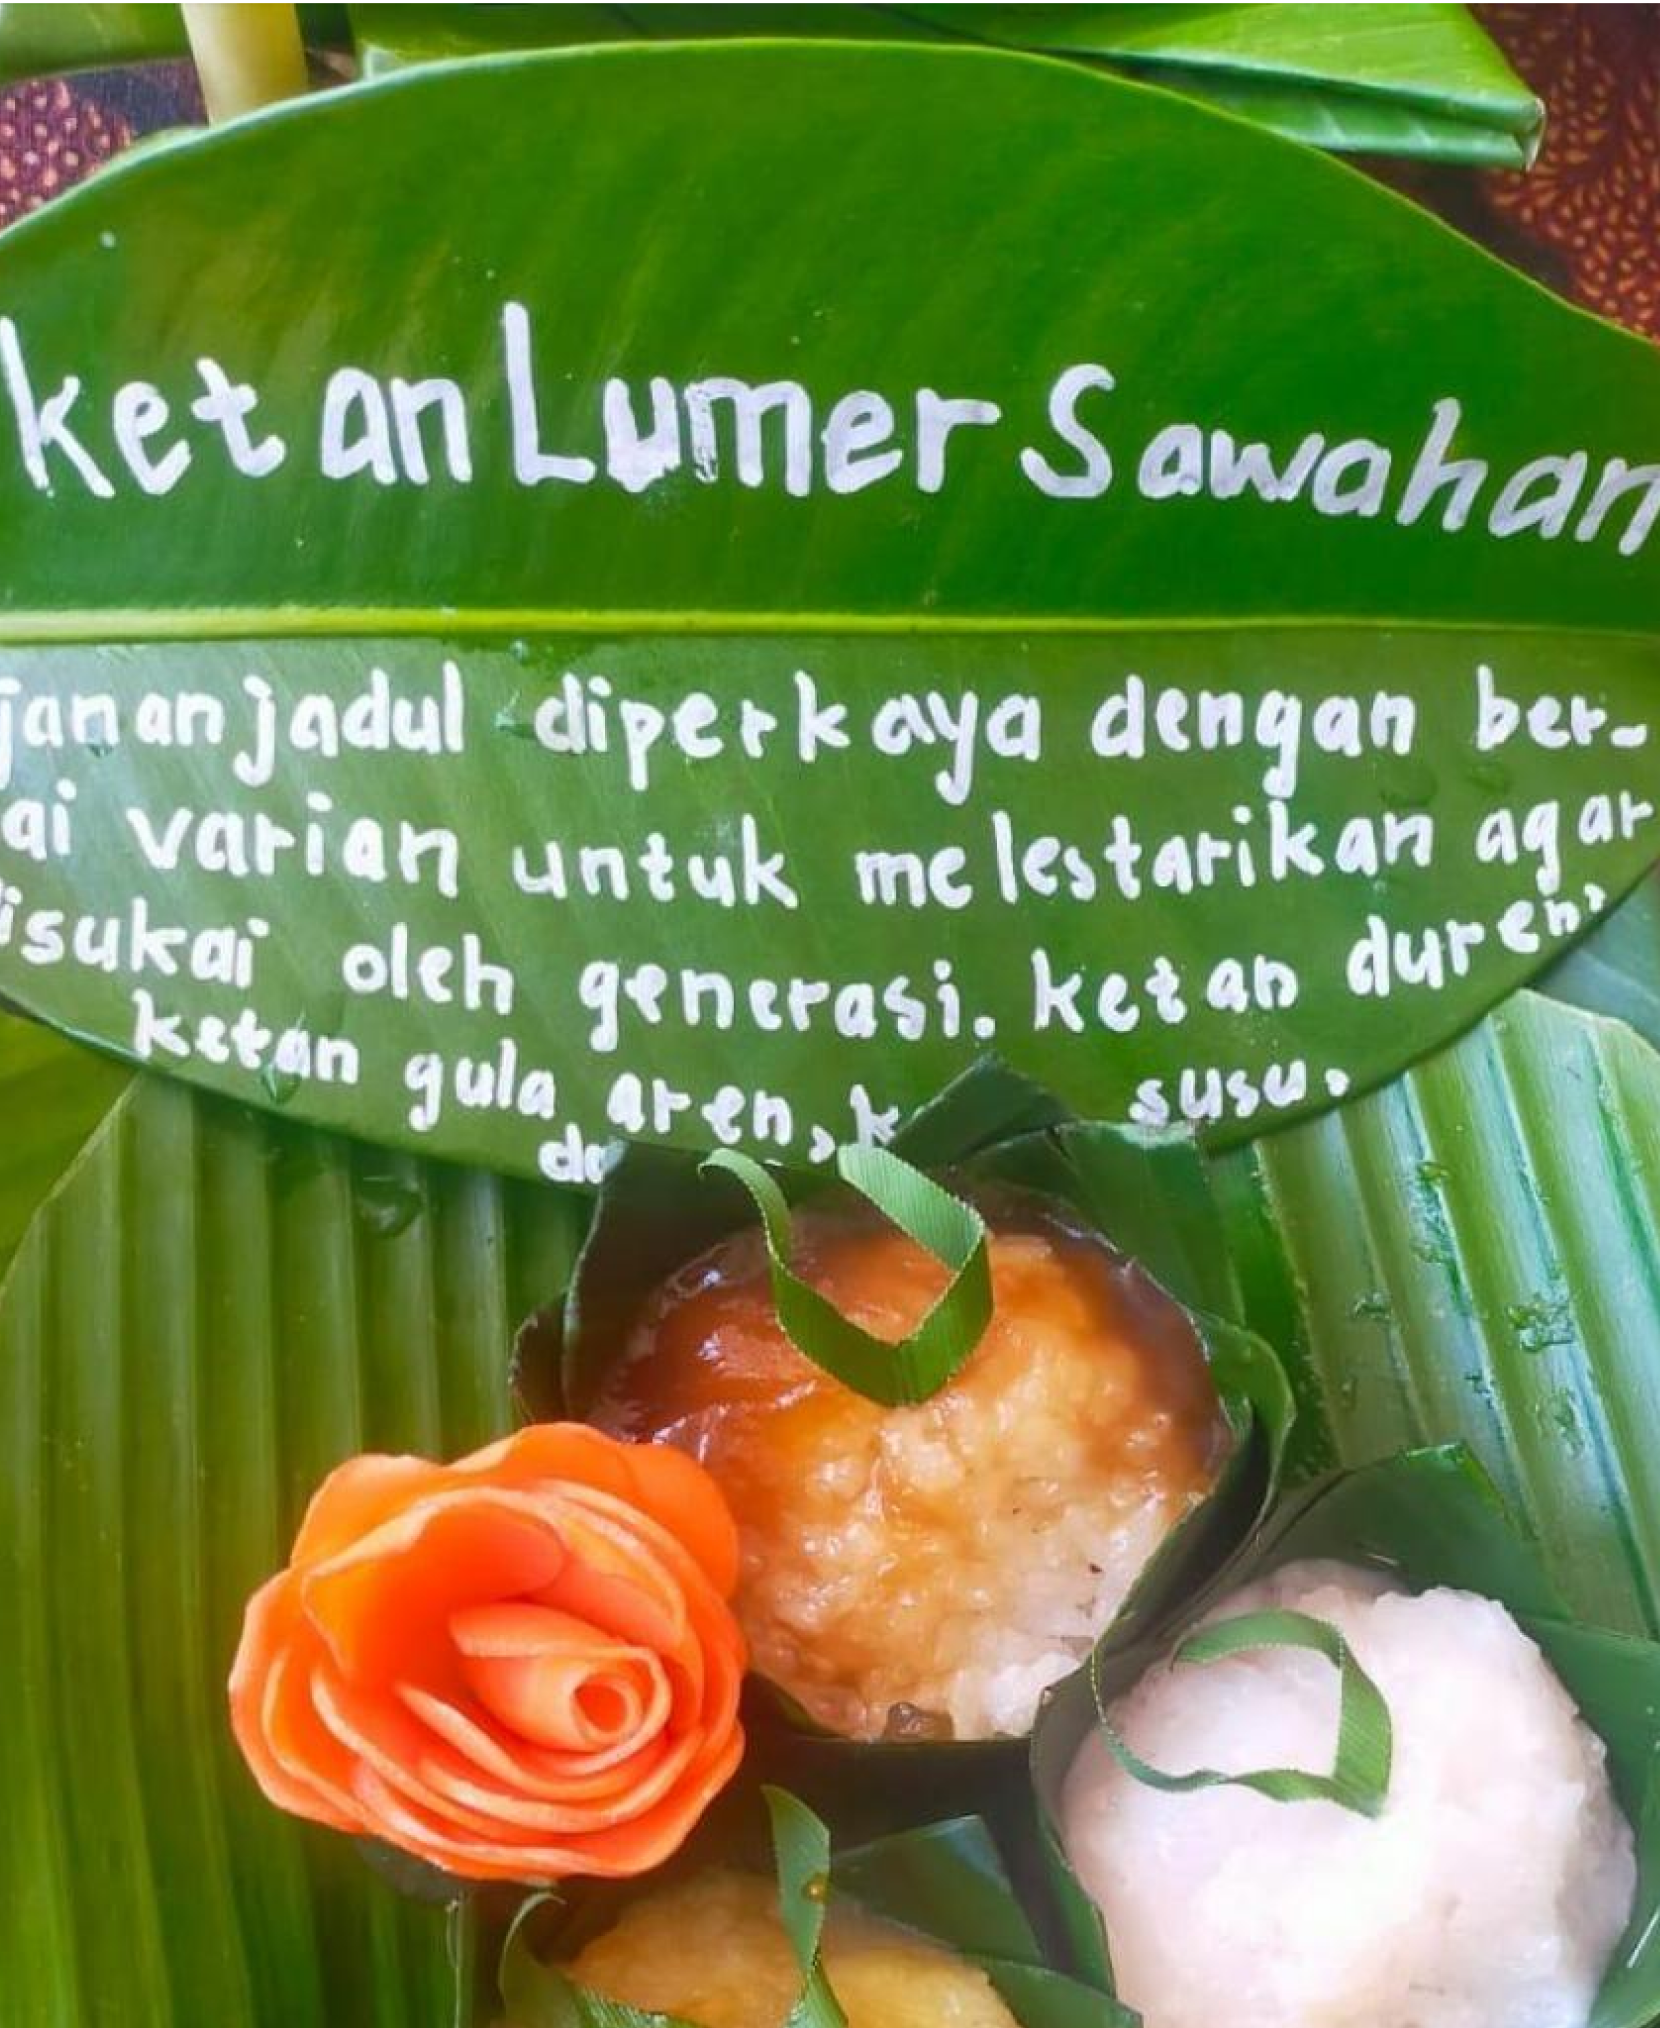 ketan Lumer Sawahan
janan jadul diperkaya dengan ber-
ai varian untuk melestarikan agar
disukai oleh generasi. ketan duren,
ketan gula aren, susu.